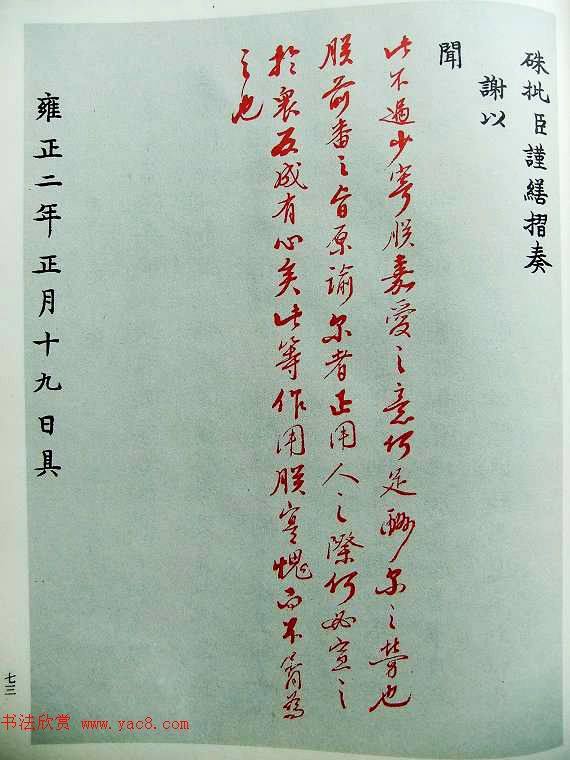 硃批臣謹繕摺奏
謝以
聞
此不過少寄朕嘉愛之意何足酬尔之勞也
朕前番之旨原諭尔者正用人之際何必宣之
於衆反成有心矣此等作用朕實愧而不肯為
之也
雍正二年正月十九日具
七三
书法欣赏 www.yac8.com